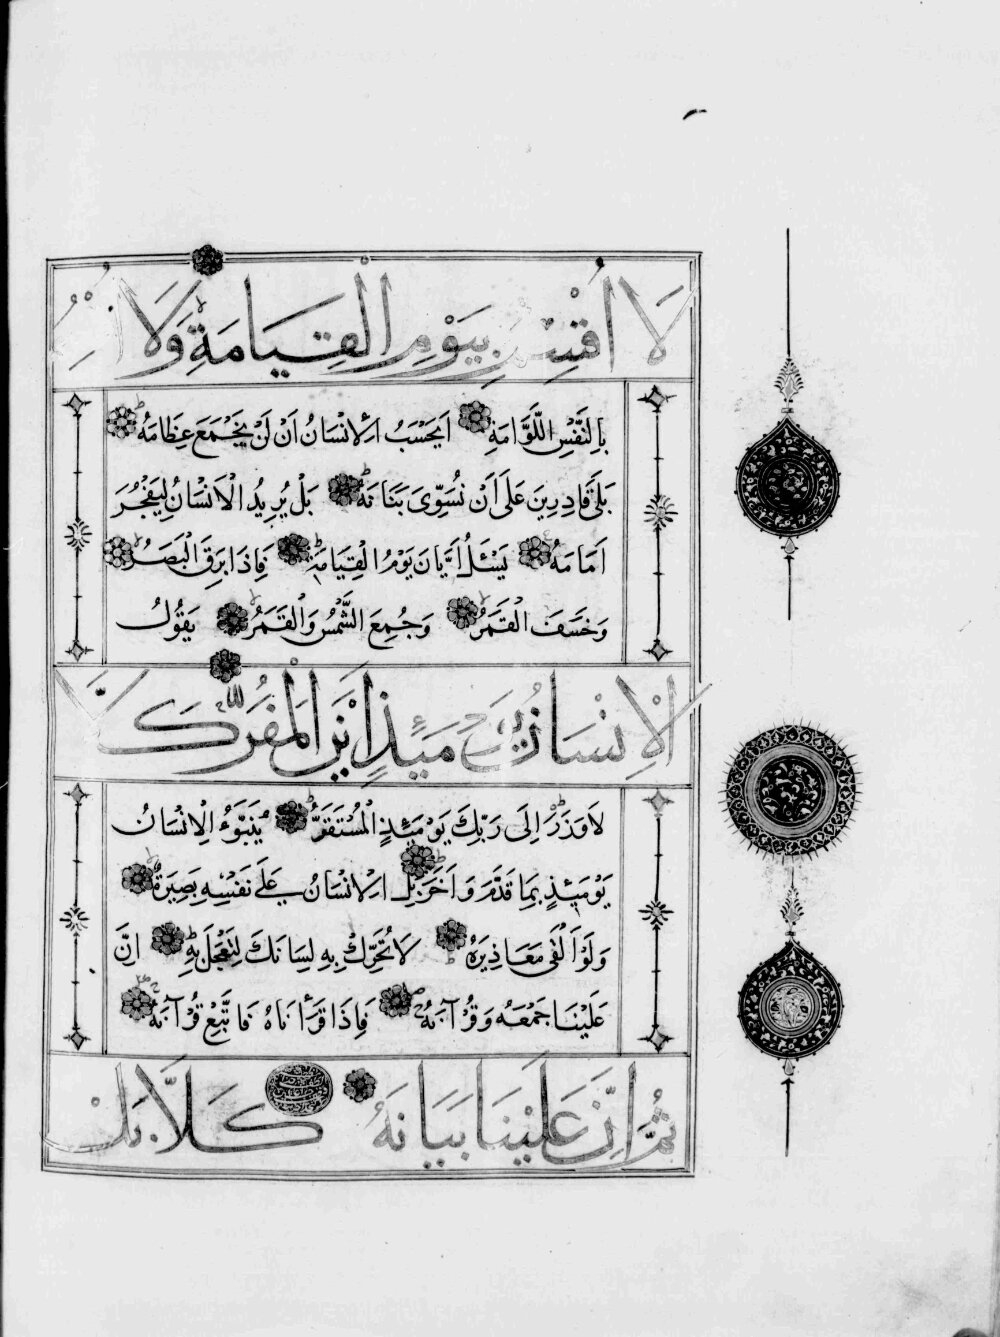 لَا أُقْسِمُ بِيَوْمِ الْقِيَامَةِ وَلَا أُقْسِمُ
بِالنَّفْسِ اللَّوَّامَةِ أَيَحْسَبُ الْإِنْسَانُ أَنْ لَنْ نَجْمَعَ عِظَامَهُ
بَلَى قَادِرِينَ عَلَى أَنْ نُسَوِّيَ بَنَانَهُ بَلْ يُرِيدُ الْإِنْسَانُ لِيَفْجُرَ
أَمَامَهُ يَسْئَلُ أَيَّانَ يَوْمُ الْقِيَامَةِ فَإِذَا بَرِقَ الْبَصَرُ
وَخَسَفَ الْقَمَرُ وَجُمِعَ الشَّمْسُ وَالْقَمَرُ يَقُولُ
الْإِنْسَانُ يَوْمَئِذٍ أَيْنَ الْمَفَرُّ كَلَّا
لَا وَزَرَ إِلَى رَبِّكَ يَوْمَئِذٍ الْمُسْتَقَرُّ يُنَبَّؤُ الْإِنْسَانُ
يَوْمَئِذٍ بِمَا قَدَّمَ وَأَخَّرَ بَلِ الْإِنْسَانُ عَلَى نَفْسِهِ بَصِيرَةٌ
وَلَوْ أَلْقَى مَعَاذِيرَهُ لَا تُحَرِّكْ بِهِ لِسَانَكَ لِتَعْجَلَ بِهِ إِنَّ
عَلَيْنَا جَمْعَهُ وَقُرْآنَهُ فَإِذَا قَرَأْنَاهُ فَاتَّبِعْ قُرْآنَهُ
ثُمَّ إِنَّ عَلَيْنَا بَيَانَهُ كَلَّا بَلْ